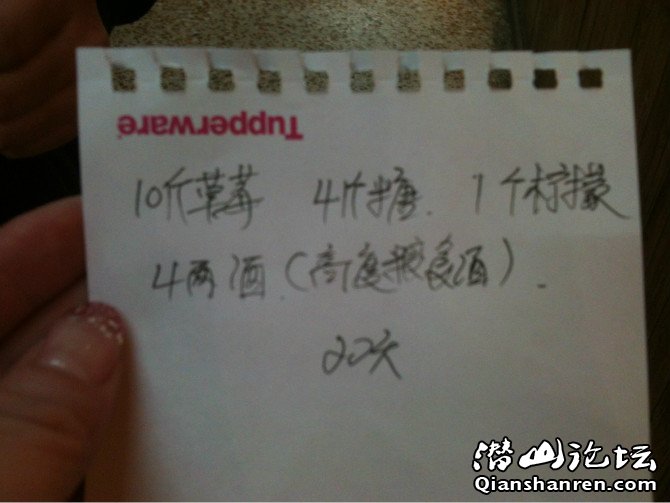 Tupperware
10斤草莓 4斤糖. 1个柠檬
4两酒.(高度粮食酒).
20天
潜山论坛
Qianshanren.com